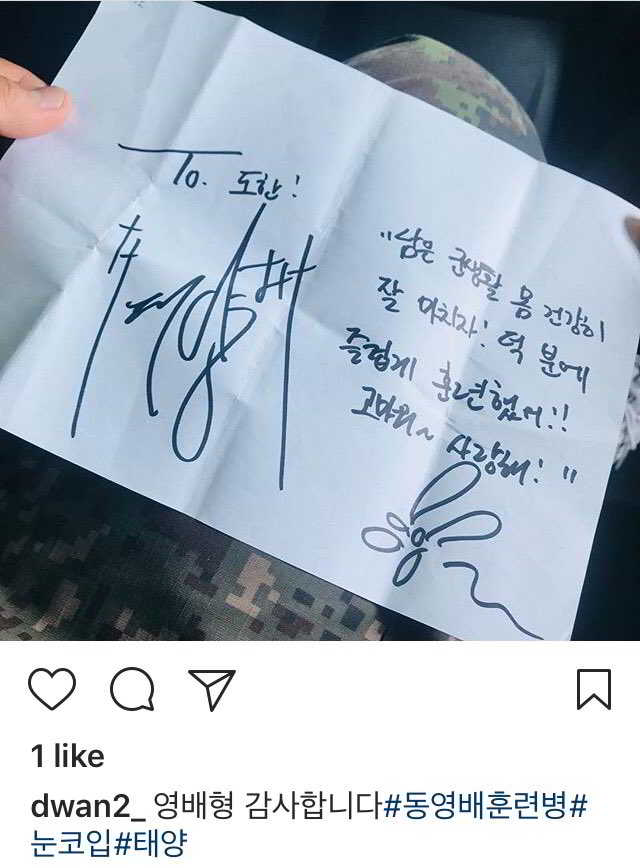 To. 도한!
"남은 군생활 몸 건강히
잘 마치자! 덕 분에
즐겁게 훈련했어!!
고마워~ 사랑해! "
1 like
dwan2_ 영배형 감사합니다#동영배훈련병#
눈코입#태양